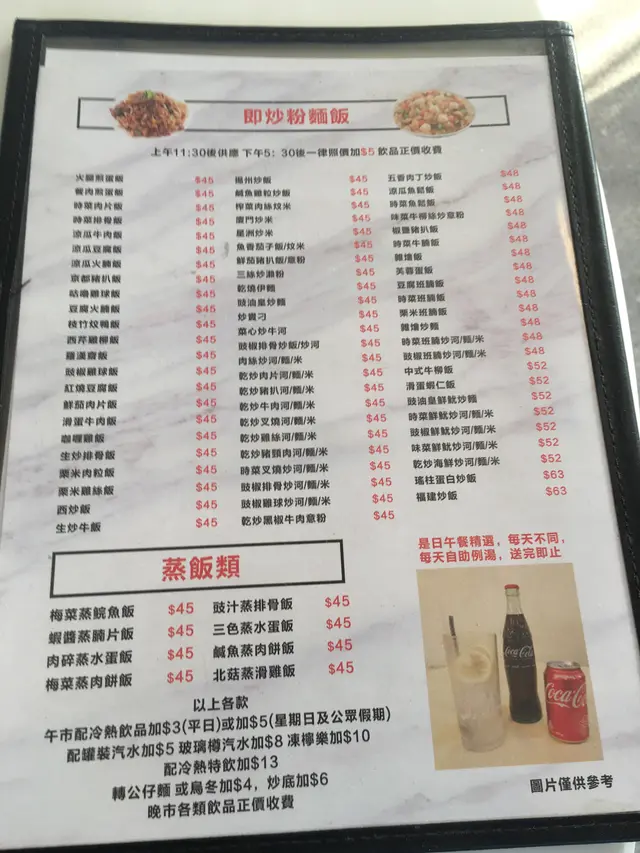 即炒粉麵飯
上午11:30後供應 下午5:30後一律照價加$5 飲品正價收費
火腿煎蛋飯 $45
餐肉煎蛋飯 $45
時菜肉片飯 $45
時菜排骨飯 $45
涼瓜牛肉飯 $45
涼瓜豆腐飯 $45
涼瓜火腩飯 $45
京都豬扒飯 $45
咕嚕雞球飯 $45
豆腐火腩飯 $45
枝竹炆鴨飯 $45
西芹雞柳飯 $45
羅漢齋飯 $45
豉椒雞球飯 $45
紅燒豆腐飯 $45
鮮茄肉片飯 $45
滑蛋牛肉飯 $45
咖喱雞飯 $45
生炒排骨飯 $45
粟米肉粒飯 $45
粟米雞絲飯 $45
西炒飯 $45
生炒牛飯 $45
揚州炒飯 $45
鹹魚雞粒炒飯 $45
榨菜肉絲炆米 $45
廈門炒米 $45
星洲炒米 $45
魚香茄子飯/炆米 $45
鮮茄豬扒飯/意粉 $45
三絲炒瀨粉 $45
乾燒伊麵 $45
豉油皇炒麵 $45
炒貴刁 $45
菜心炒牛河 $45
豉椒排骨炒飯/炒河 $45
肉絲炒河/麵/米 $45
乾炒肉片河/麵/米 $45
乾炒豬扒河/麵/米 $45
乾炒牛肉河/麵/米 $45
乾炒叉燒河/麵/米 $45
乾炒雞絲河/麵/米 $45
乾炒豬頸肉河/麵/米 $45
時菜叉燒炒河/麵/米 $45
豉椒排骨炒河/麵/米 $45
豉椒雞球炒河/麵/米 $45
乾炒黑椒牛肉意粉 $45
五香肉丁炒飯 $48
涼瓜魚鬆飯 $48
時菜魚鬆飯 $48
味菜牛柳絲炒意粉 $48
椒鹽豬扒飯 $48
時菜牛腩飯 $48
雜燴飯 $48
芙蓉蛋飯 $48
豆腐班腩飯 $48
時菜班腩飯 $48
粟米班腩飯 $48
雜燴炒麵 $48
時菜班腩炒河/麵/米 $48
豉椒班腩炒河/麵/米 $48
中式牛柳飯 $52
滑蛋蝦仁飯 $52
豉油皇鮮魷炒麵 $52
時菜鮮魷炒河/麵/米 $52
豉椒鮮魷炒河/麵/米 $52
味菜鮮魷炒河/麵/米 $52
乾炒海鮮炒河/麵/米 $52
瑤柱蛋白炒飯 $63
福建炒飯 $63
蒸飯類
梅菜蒸鯇魚飯 $45
蝦醬蒸腩片飯 $45
肉碎蒸水蛋飯 $45
梅菜蒸肉餅飯 $45
豉汁蒸排骨飯 $45
三色蒸水蛋飯 $45
鹹魚蒸肉餅飯 $45
北菇蒸滑雞飯 $45
以上各款
午市配冷熱飲品加$3(平日)或加$5(星期日及公眾假期)
配罐裝汽水加$5 玻璃樽汽水加$8 凍檸樂加$10
配冷熱特飲加$13
轉公仔麵 或烏冬加$4，炒底加$6
晚市各類飲品正價收費
是日午餐精選，每天不同，
每天自助例湯，送完即止
Coca-Cola
Coca-Cola
圖片僅供參考